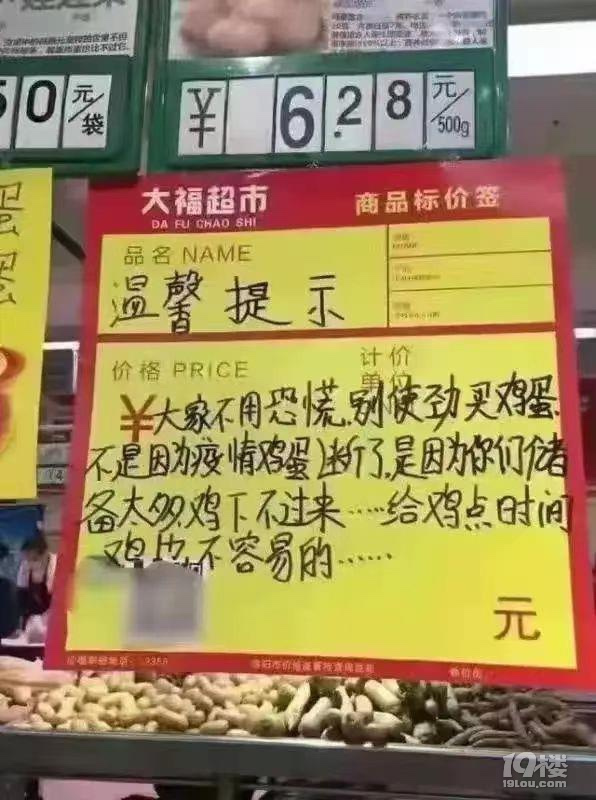 50 元/袋
¥ 6.28 元/500g
大福超市
DA FU CHAO SHI
商品标价签
品名 NAME
温馨提示
价格 PRICE
计价
单位
¥ 大家不用恐慌,别使劲买鸡蛋,
不是因为疫情鸡蛋断了,是因为你们储
备太多,鸡下不过来……给鸡点时间
鸡也不容易的……
元
19楼
19lou.com